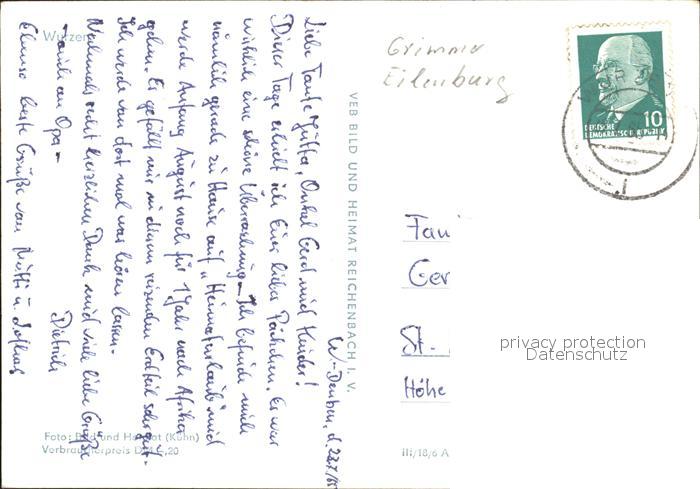 W.-Deuben, d. 22.7./65
Liebe Tante Jutta, Onkel Gerd und Kinder!
Dieser Tage erhielt ich Euer liebes Päckchen. Es war
wirklich eine schöne Überraschung. Ich befinde mich
nämlich gerade zu Hause auf "Heimaturlaub" und
werde Anfang August noch für 1 Jahr nach Afrika
gehen. Es gefällt mir in diesem reizenden Erdteil sehr gut.
Ich werde von dort mal was hören lassen.
Nochmals recht herzlichen Dank und viele liebe Grüße
- auch an Opa -
Dietrich
Ebenso beste Grüße von Mutti u.
Wurzen
Foto: Bild und Heimat (Kühn)
Verbraucherpreis DM 0,20
VEB BILD UND HEIMAT REICHENBACH I. V.
III/18/6 A
Grimma
Eilenburg
10
DEUTSCHE
DEMOKRATISCHE REPUBLIK
Fam
Ger
St.
Höhe
privacy protection
Datenschutz